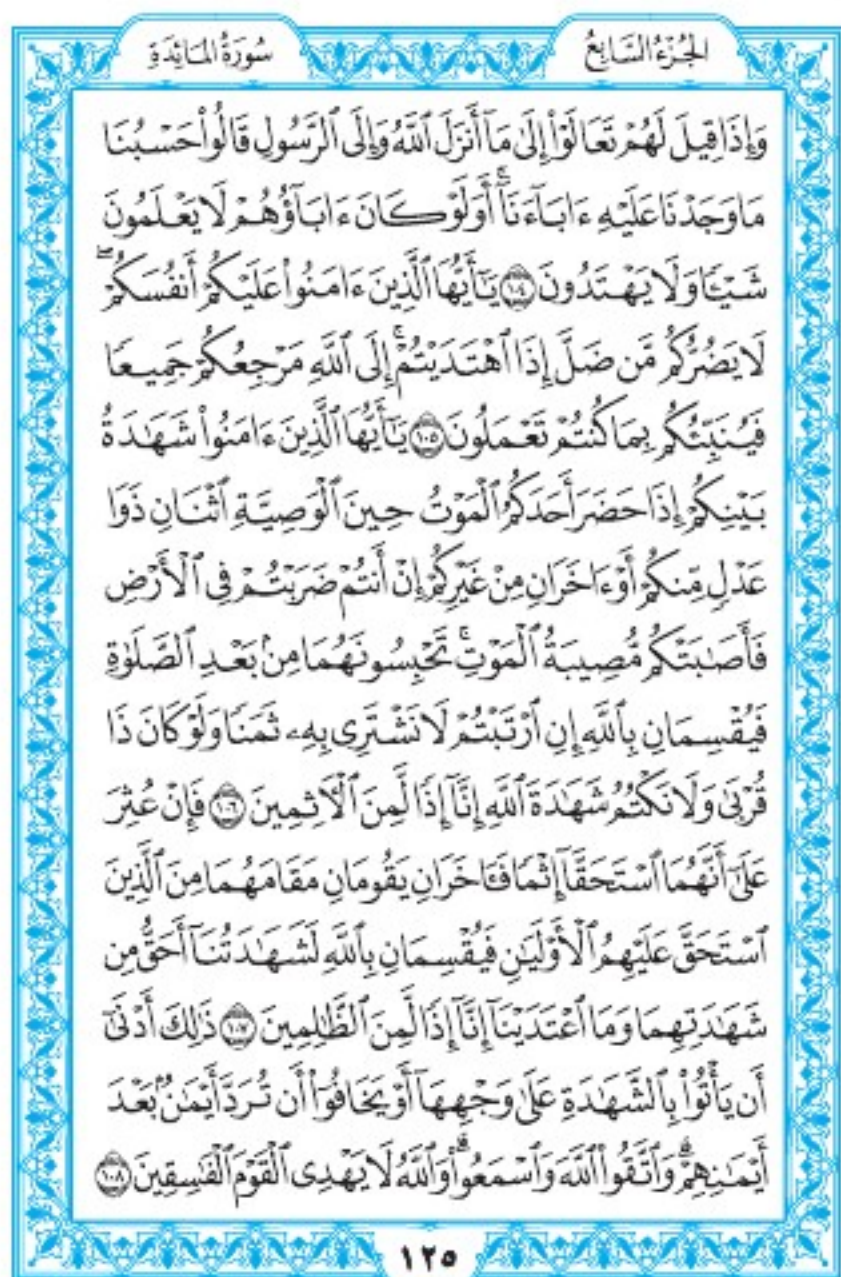 الجُزْءُ السَّابِعُ
سُورَةُ المَائِدَةِ
وَإِذَا قِيلَ لَهُمۡ تَعَالَوۡاْ إِلَىٰ مَآ أَنزَلَ ٱللَّهُ وَإِلَى ٱلرَّسُولِ قَالُواْ حَسۡبُنَا
مَا وَجَدۡنَا عَلَيۡهِ ءَابَآءَنَآۚ أَوَلَوۡ كَانَ ءَابَآؤُهُمۡ لَا يَعۡلَمُونَ
شَيۡـٔٗا وَلَا يَهۡتَدُونَ ١٠٤ يَـٰٓأَيُّهَا ٱلَّذِينَ ءَامَنُواْ عَلَيۡكُمۡ أَنفُسَكُمۡۖ
لَا يَضُرُّكُم مَّن ضَلَّ إِذَا ٱهۡتَدَيۡتُمۡۚ إِلَى ٱللَّهِ مَرۡجِعُكُمۡ جَمِيعٗا
فَيُنَبِّئُكُم بِمَا كُنتُمۡ تَعۡمَلُونَ ١٠٥ يَـٰٓأَيُّهَا ٱلَّذِينَ ءَامَنُواْ شَهَٰدَةُ
بَيۡنِكُمۡ إِذَا حَضَرَ أَحَدَكُمُ ٱلۡمَوۡتُ حِينَ ٱلۡوَصِيَّةِ ٱثۡنَانِ ذَوَا
عَدۡلٖ مِّنكُمۡ أَوۡ ءَاخَرَانِ مِنۡ غَيۡرِكُمۡ إِنۡ أَنتُمۡ ضَرَبۡتُمۡ فِي ٱلۡأَرۡضِ
فَأَصَٰبَتۡكُم مُّصِيبَةُ ٱلۡمَوۡتِۚ تَحۡبِسُونَهُمَا مِنۢ بَعۡدِ ٱلصَّلَوٰةِ
فَيُقۡسِمَانِ بِٱللَّهِ إِنِ ٱرۡتَبۡتُمۡ لَا نَشۡتَرِي بِهِۦ ثَمَنٗا وَلَوۡ كَانَ ذَا
قُرۡبَىٰ وَلَا نَكۡتُمُ شَهَٰدَةَ ٱللَّهِ إِنَّآ إِذٗا لَّمِنَ ٱلۡأٓثِمِينَ ١٠٦ فَإِنۡ عُثِرَ
عَلَىٰٓ أَنَّهُمَا ٱسۡتَحَقَّآ إِثۡمٗا فَـَٔاخَرَانِ يَقُومَانِ مَقَامَهُمَا مِنَ ٱلَّذِينَ
ٱسۡتَحَقَّ عَلَيۡهِمُ ٱلۡأَوۡلَيَٰنِ فَيُقۡسِمَانِ بِٱللَّهِ لَشَهَٰدَتُنَآ أَحَقُّ مِن
شَهَٰدَتِهِمَا وَمَا ٱعۡتَدَيۡنَآ إِنَّآ إِذٗا لَّمِنَ ٱلظَّٰلِمِينَ ١٠٧ ذَٰلِكَ أَدۡنَىٰٓ
أَن يَأۡتُواْ بِٱلشَّهَٰدَةِ عَلَىٰ وَجۡهِهَآ أَوۡ يَخَافُوٓاْ أَن تُرَدَّ أَيۡمَٰنُۢ بَعۡدَ
أَيۡمَٰنِهِمۡۗ وَٱتَّقُواْ ٱللَّهَ وَٱسۡمَعُواْۗ وَٱللَّهُ لَا يَهۡدِي ٱلۡقَوۡمَ ٱلۡفَٰسِقِينَ ١٠٨
١٢٥